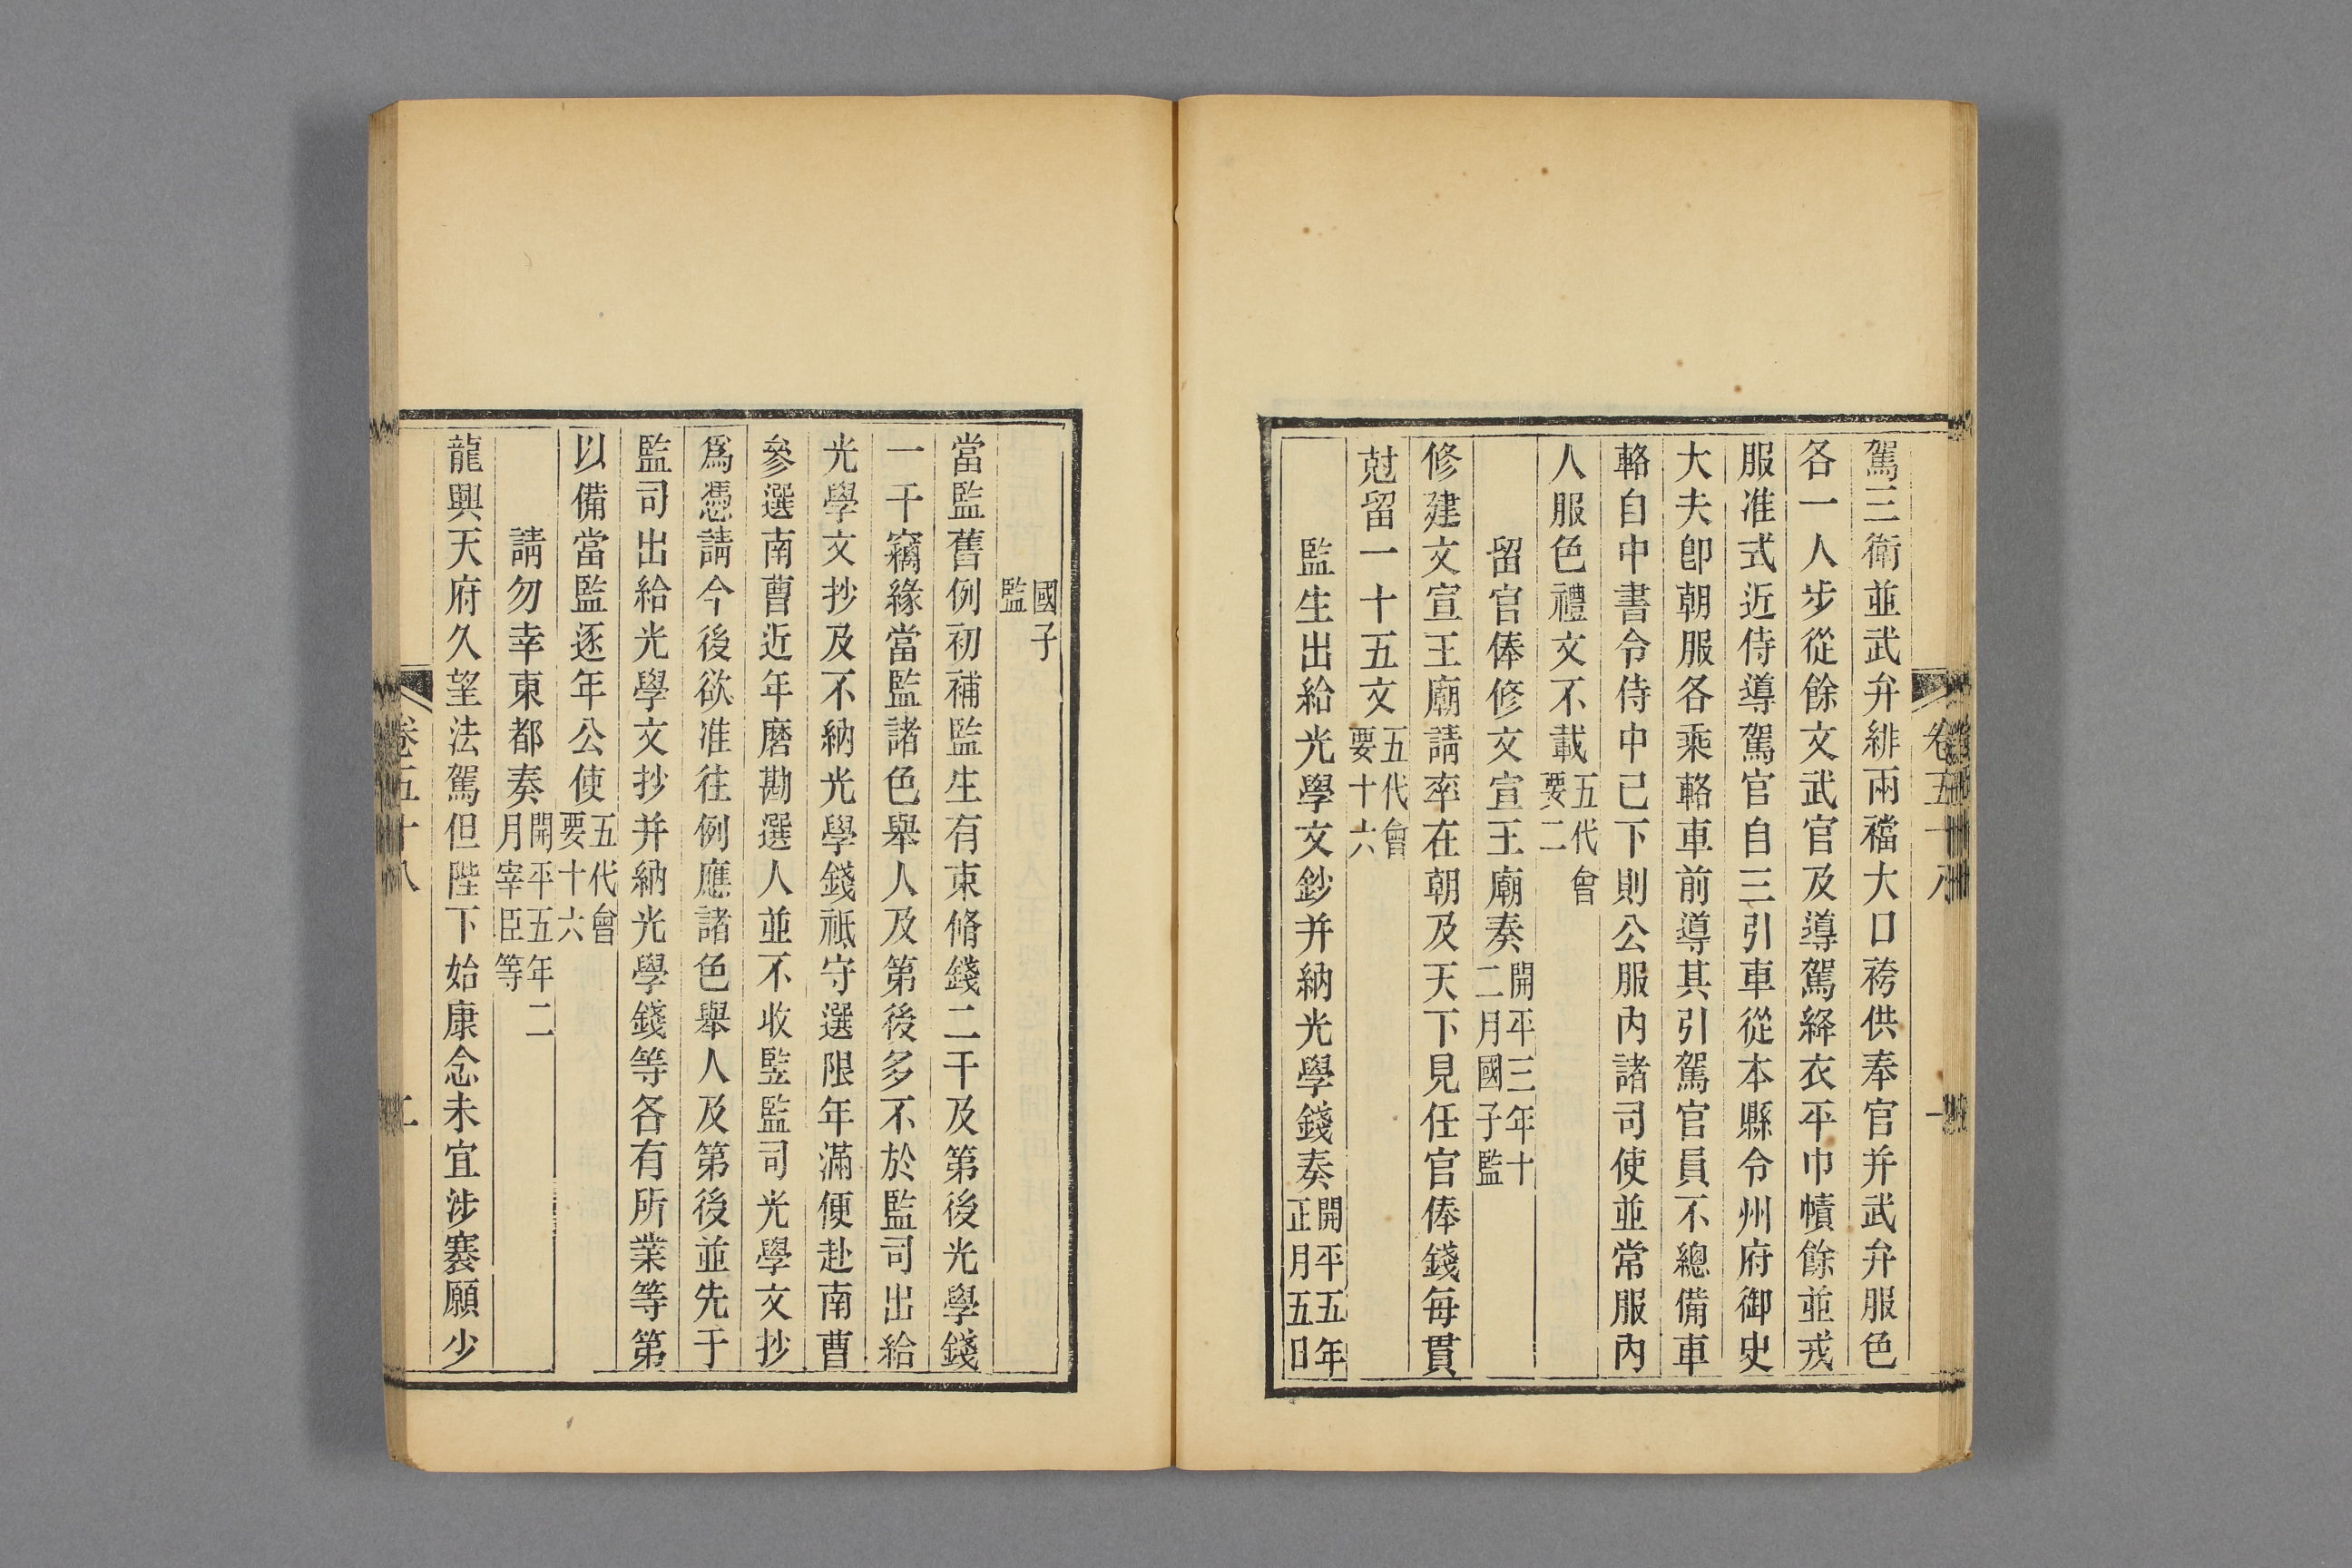 駕三衛並武弁緋兩襠大口袴供奉官并武弁服色
各一人步從餘文武官及導駕絳衣平巾幘餘並戎
服准式近侍導駕官自三引車從本縣令州府御史
大夫卽朝服各乘輅車前導其引駕官員不總備車
輅自中書令侍中已下則公服內諸司使並常服內
人服色禮文不載五代會要二
留官俸修文宣王廟奏開平三年十二月國子監
修建文宣王廟請率在朝及天下見任官俸錢每貫
尅留一十五文五代會要十六
監生出給光學文鈔并納光學錢奏開平五年正月五日
國子監
當監舊例初補監生有束脩錢二千及第後光學錢
一千竊緣當監諸色舉人及第後多不於監司出給
光學文抄及不納光學錢祗守選限年滿便赴南曹
參選南曹近年磨勘選人並不收豎監司光學文抄
爲憑請今後欲准往例應諸色舉人及第後並先于
監司出給光學文抄并納光學錢等各有所業等第
以備當監逐年公使五代會要十六
請勿幸東都奏開平五年二月宰臣等
龍興天府久望法駕但陛下始康念未宜涉寨願少
卷五十八